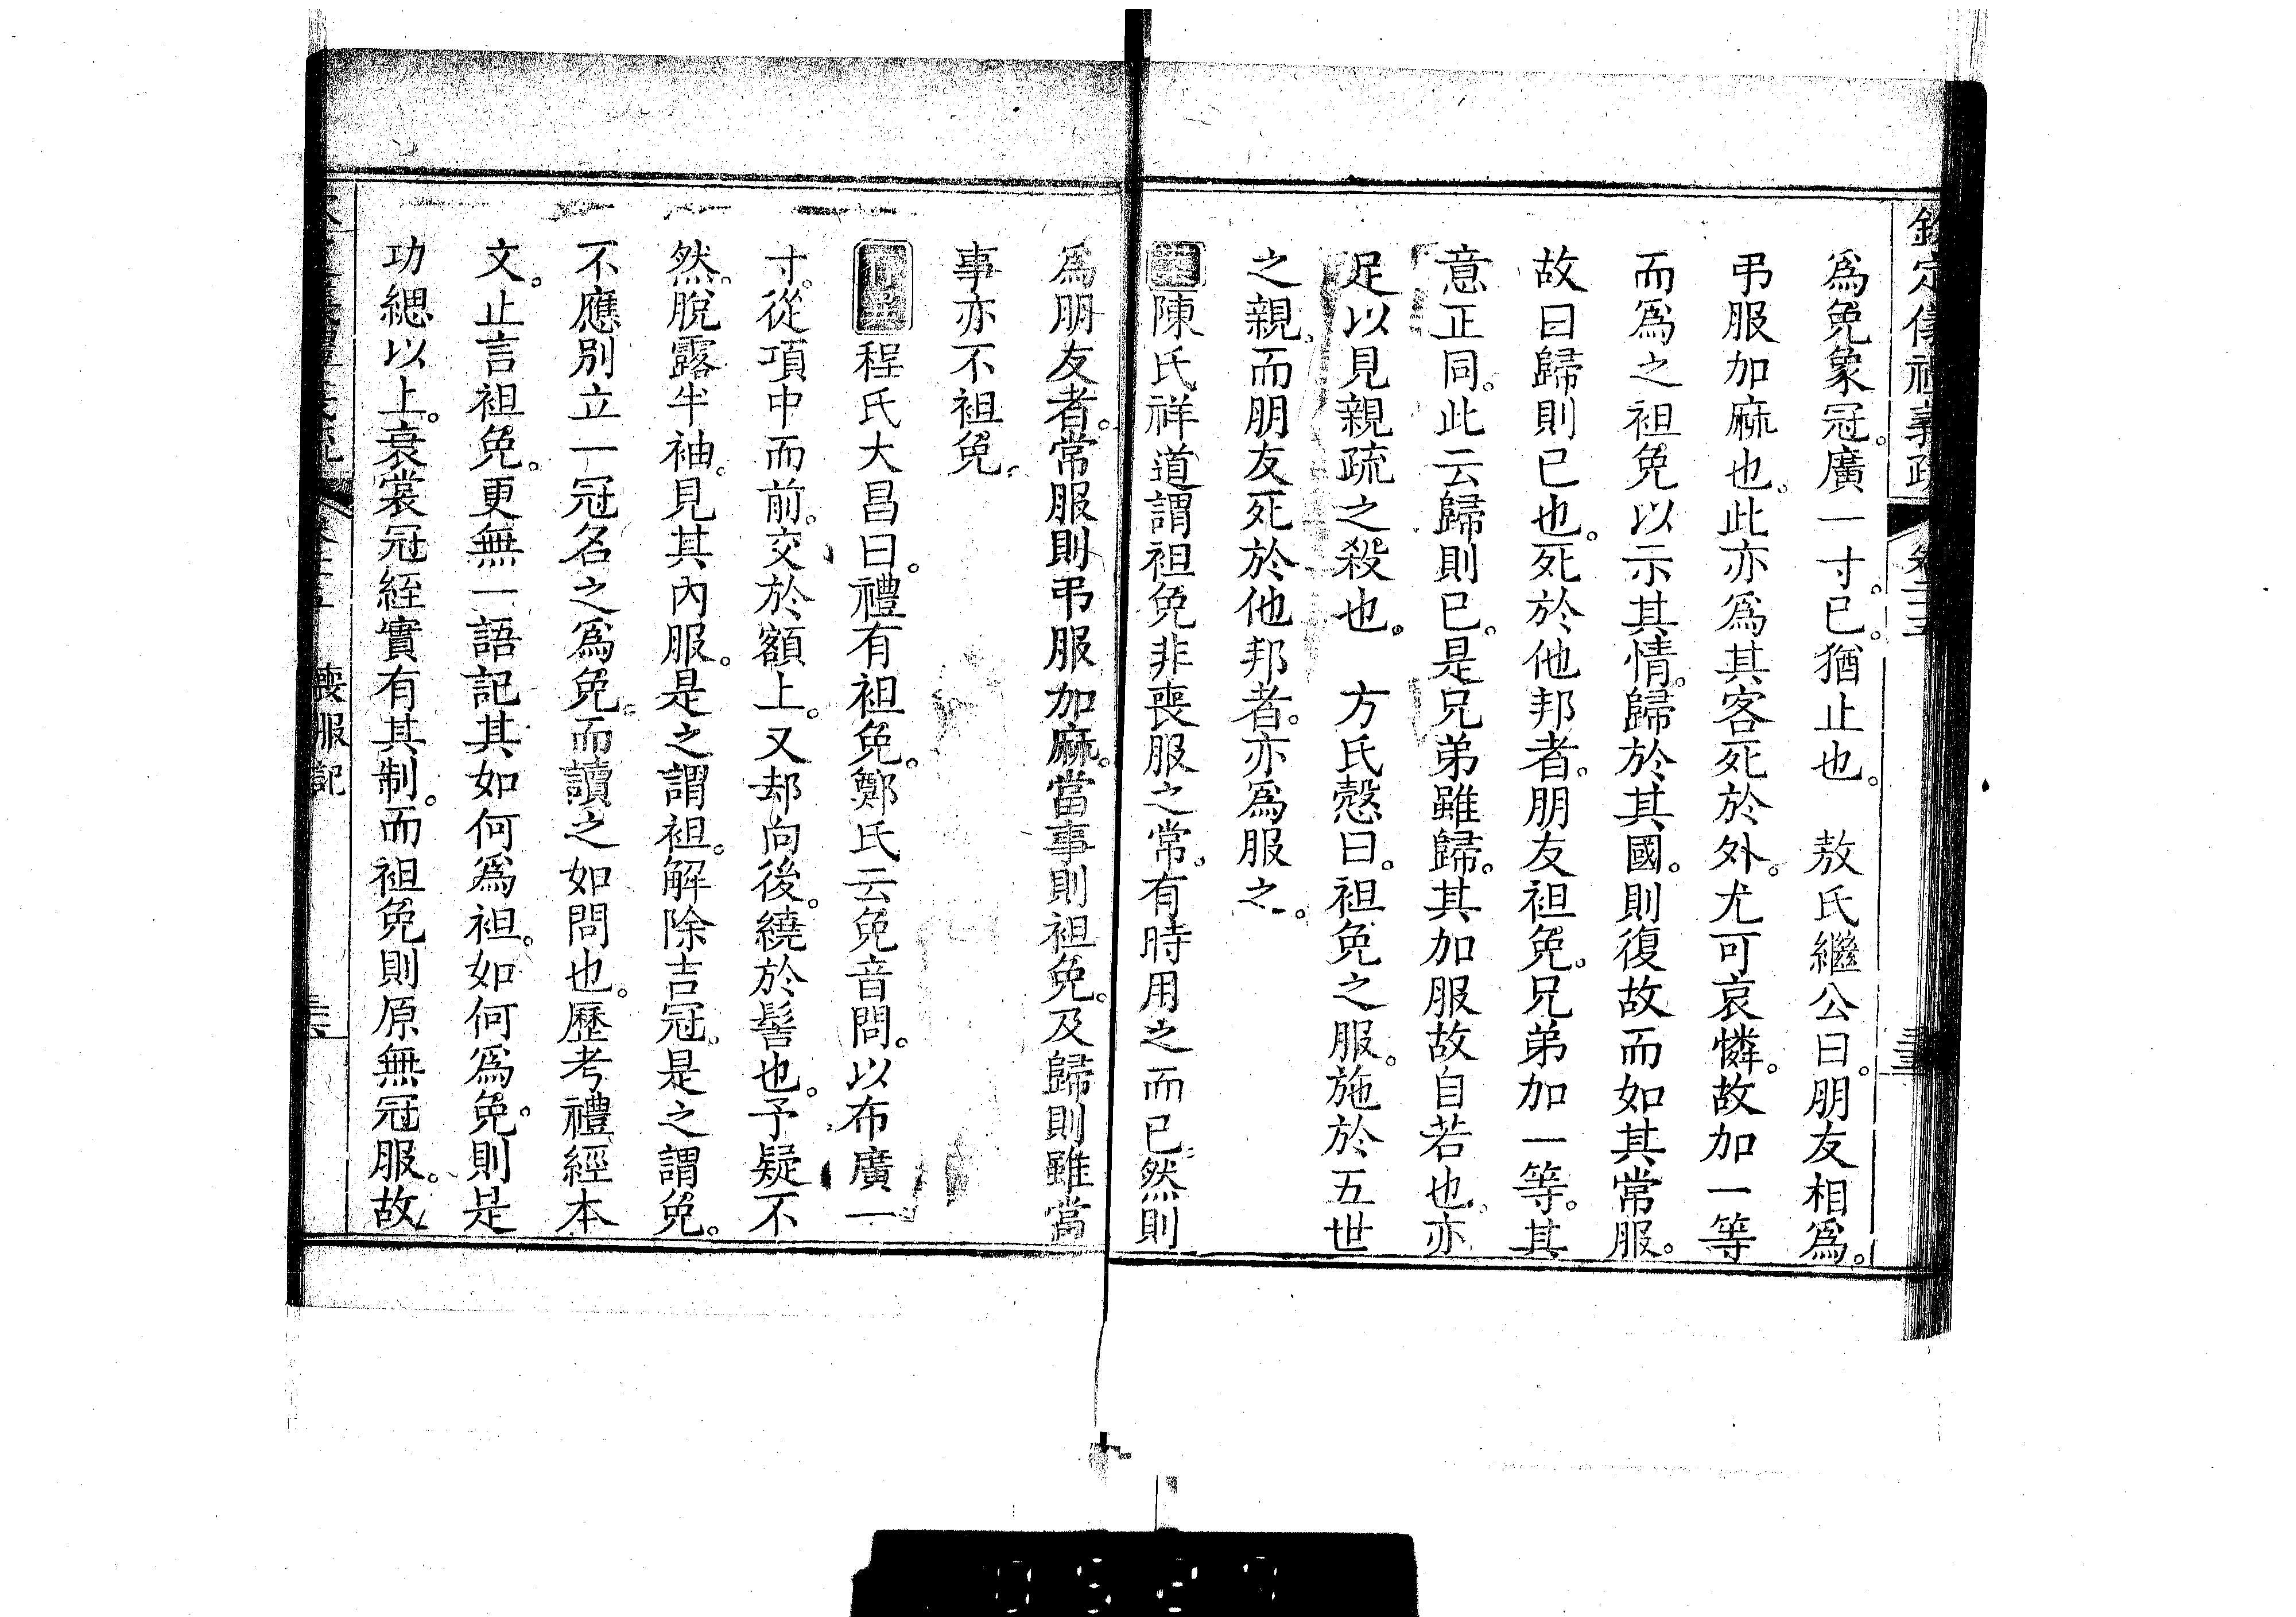 欽定儀禮義疏 卷二五
爲免象冠。廣一寸。已。猶止也。 敖氏繼公曰。朋友相爲。
弔服加麻也。此亦爲其客死於外。尤可哀憐。故加一等
而爲之袒免以示其情。歸於其國。則復故而如其常服。
故曰歸則已也。死於他邦者。朋友袒免。兄弟加一等。其
意正同。此云歸則已。是兄弟雖歸。其加服故自若也。亦
足以見親疏之殺也。 方氏慤曰。袒免之服。施於五世
之親。而朋友死於他邦者。亦爲服之。
陳氏祥道謂袒免非喪服之常。有時用之而已。然則
爲朋友者。常服則弔服加麻。當事則袒免。及歸則雖當
事亦不袒免。
程氏大昌曰。禮有袒免。鄭氏云免音問。以布廣一
寸。從項中而前。交於額上。又却向後。繞於髻也。予疑不
然。脫露半袖。見其內服。是之謂袒。解除吉冠。是之謂免。
不應別立一冠名之爲免。而讀之如問也。歷考禮經本
文。止言袒免。更無一語記其如何爲袒。如何爲免。則是
功緦以上。衰裳冠絰實有其制。而袒免則原無冠服。故
喪服記